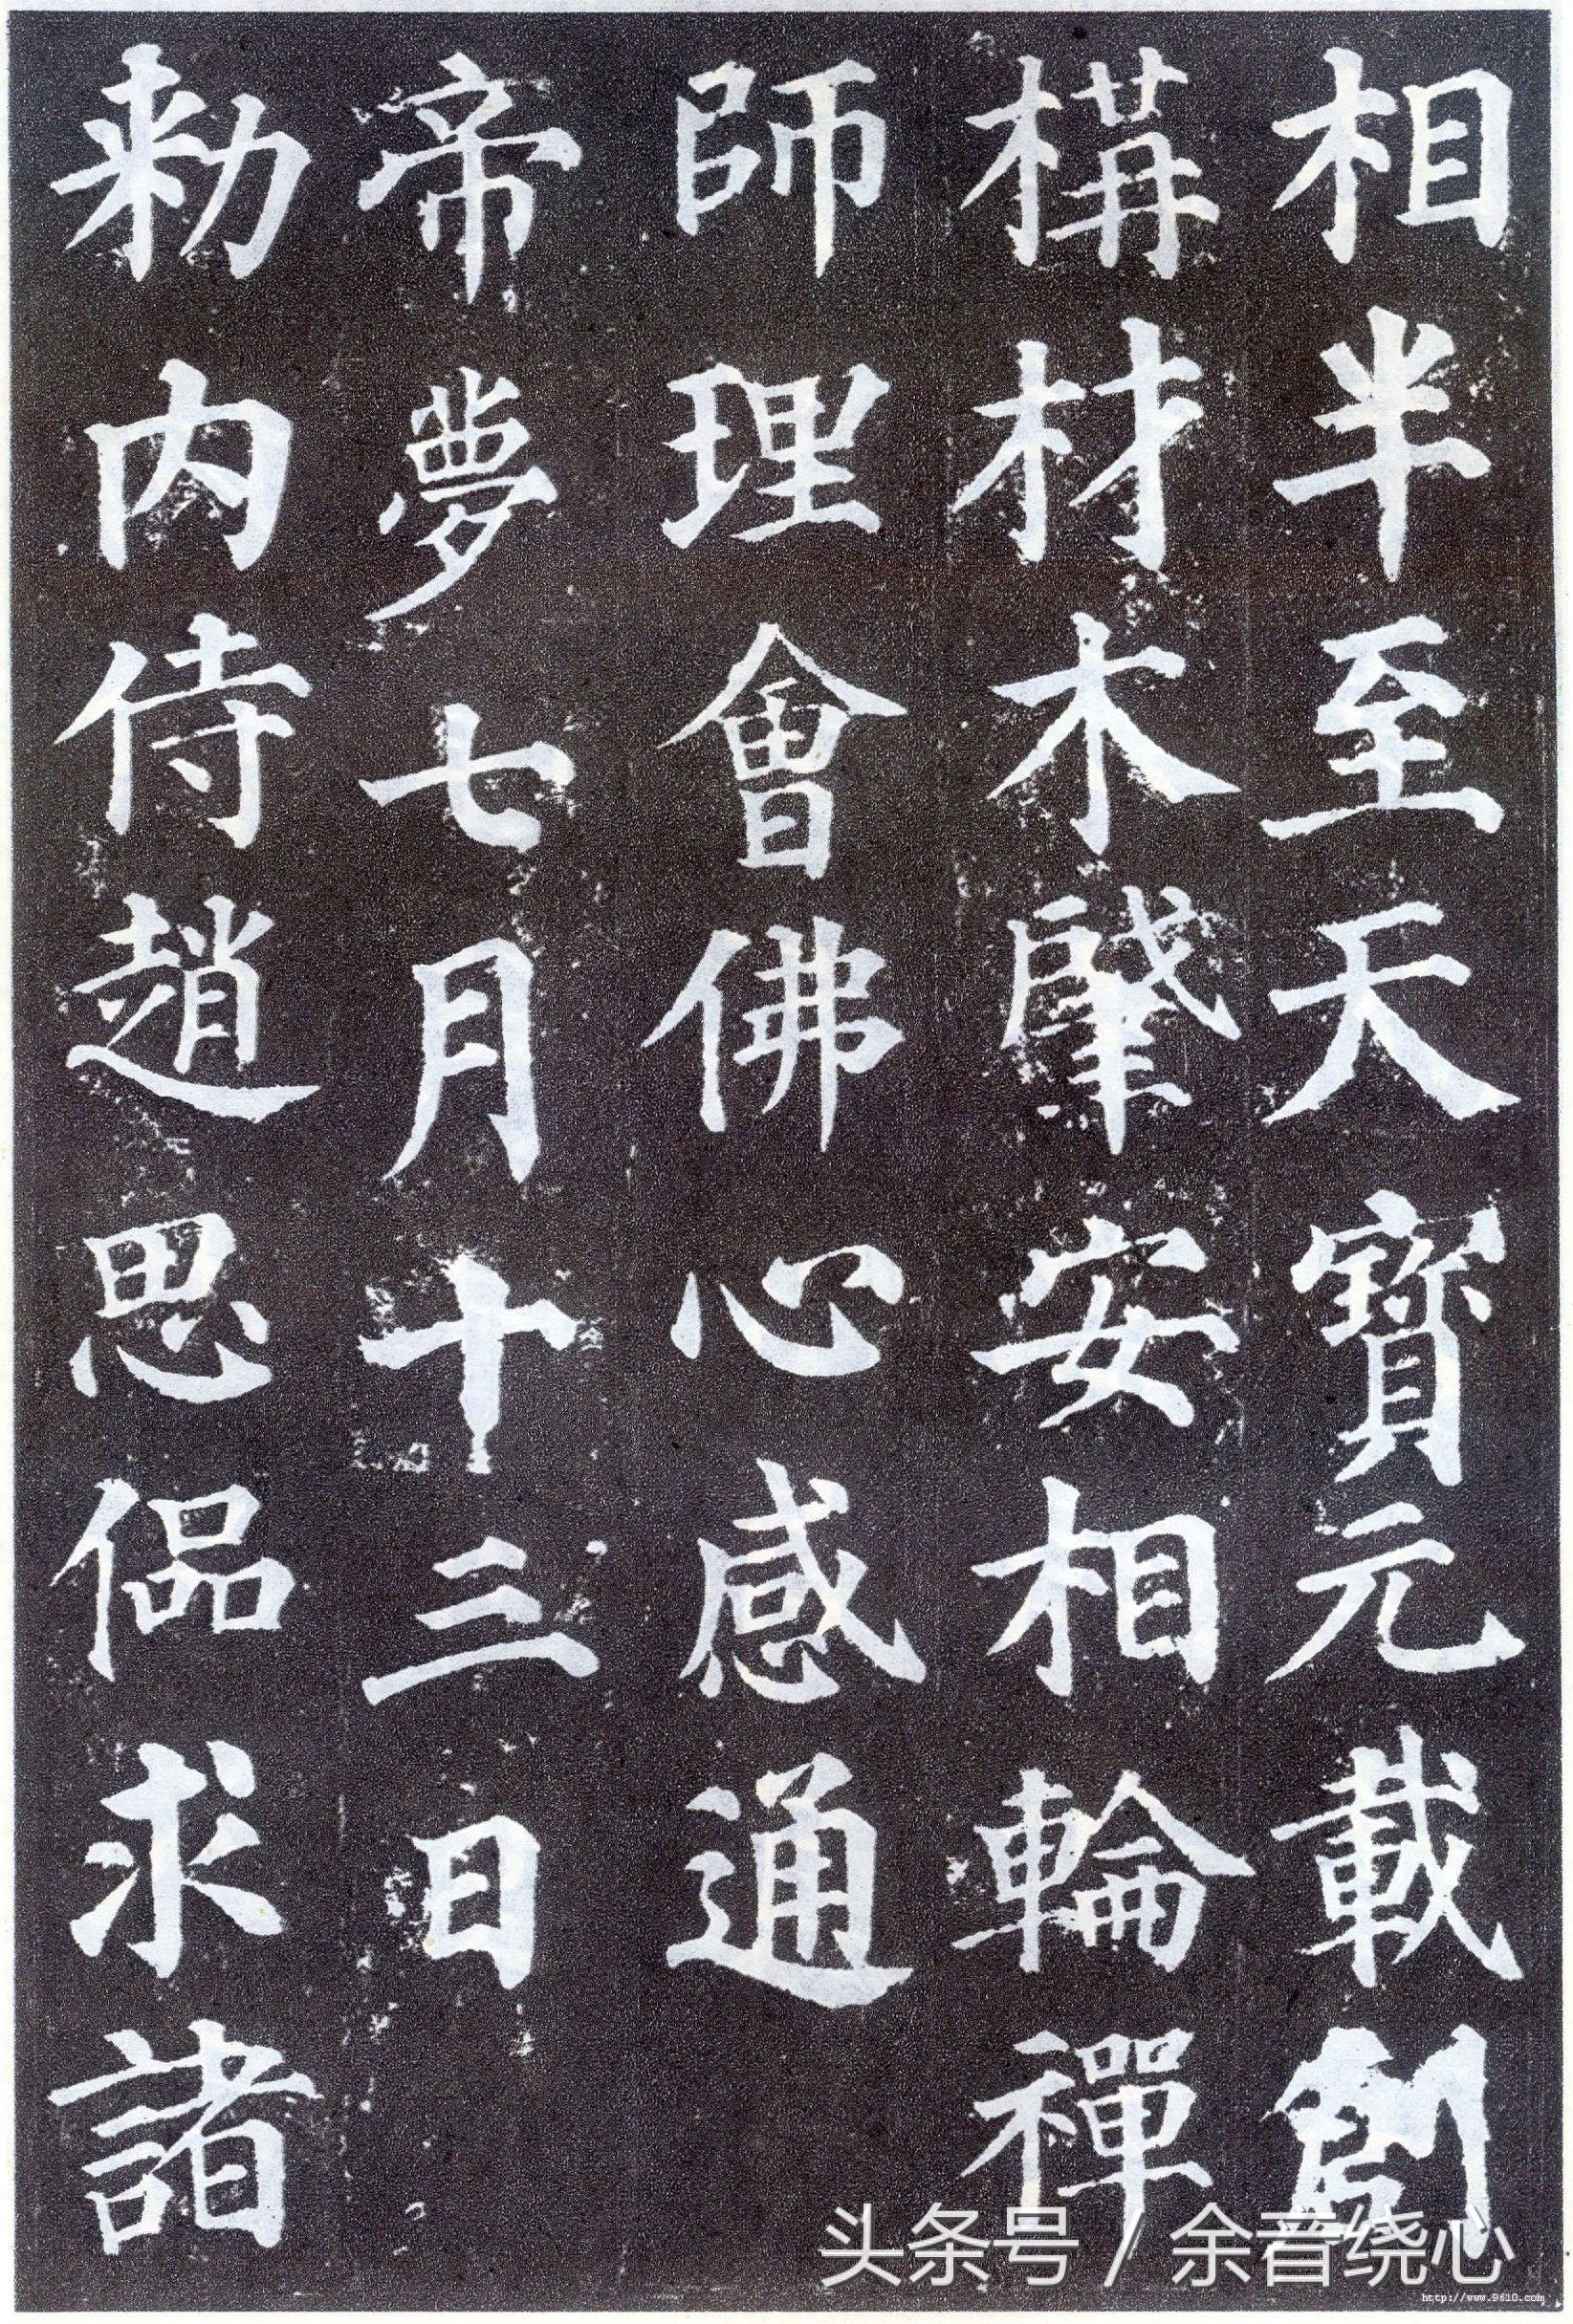 相半至天寶元載創
構材木肇安相輪禪
師理會佛心感通
帝夢七月十三日
勅内侍趙思偘求諸
头条号 / 余音绕心
http://www.9610.com